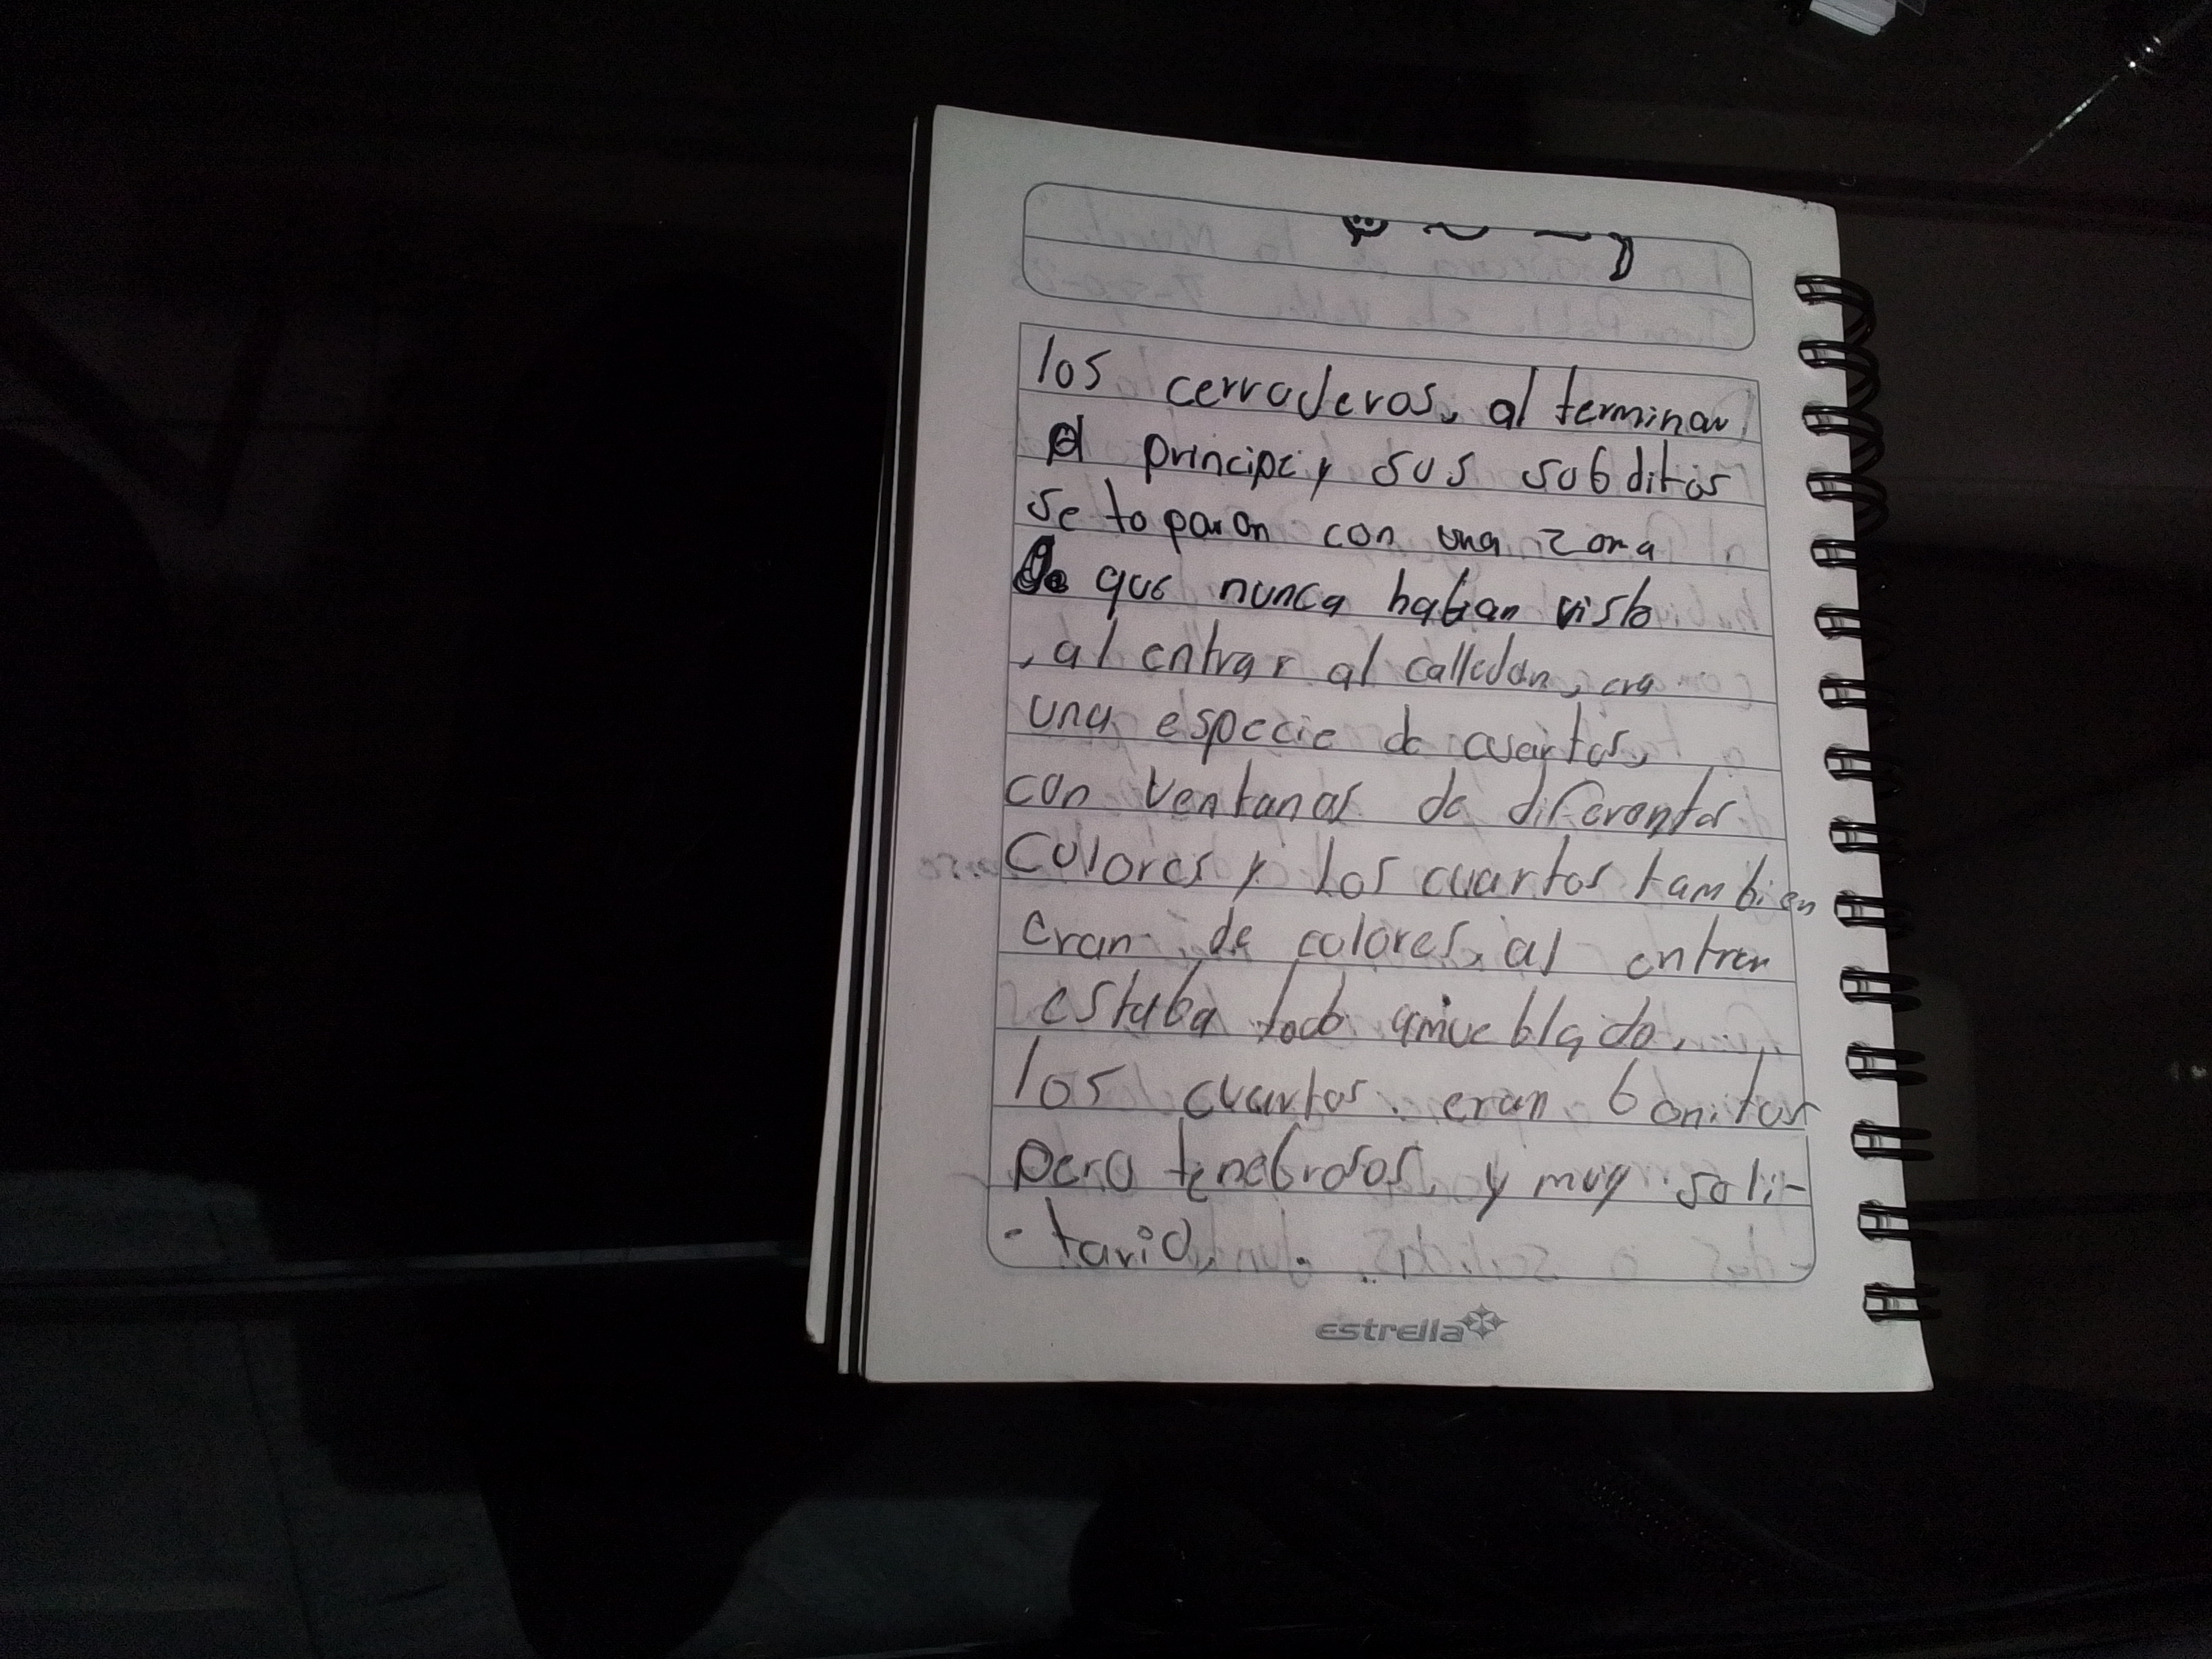 los cerraderos, al terminar
el principe y sus subditos
se toparon con una zona
que nunca habian visto
, al entrar al calledon, era
una especie de cuartos,
con ventanas de diferentes
colores y los cuartos tambien
eran de colores, al entrar
estaba todo amueblado,
los cuartos eran bonitos
pero tenebrosos y muy soli-
- tario,
estrella